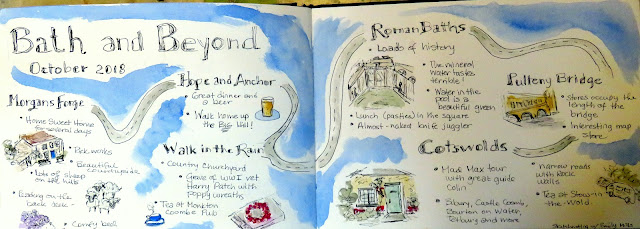 Bath and Beyond
October 2018
Morgans Forge
• Home Sweet Home
for several days
• Pick works
• Beautiful
countryside
• Lots of sheep
on the hills
• Reading on the
back deck
• Comfy bed
Hope and Anchor
• Great dinner and
a beer
• Walk home up
the Big Hill!
Walk in the Rain
• Country Churchyard
• Grave of WWI vet
Harry Patch with
poppy wreaths
• Tea at Monkton
Coombe Pub
Roman Baths
• Loads of history
• The mineral
water tastes
terrible!
• Water in the
pool is a
beautiful green
• Lunch (pasties) in the square
• Almost-naked knife juggler
Pulteny Bridge
• Stores occupy the
length of the
bridge
• Interesting map
store
Cotswolds
• Mad Max tour
with great guide
Colin
• Bibury, Castle Coomb,
Bourton on Water,
Tetbury and more
• Narrow roads
with rock
walls
• Tea at Stow-in
the-Wold